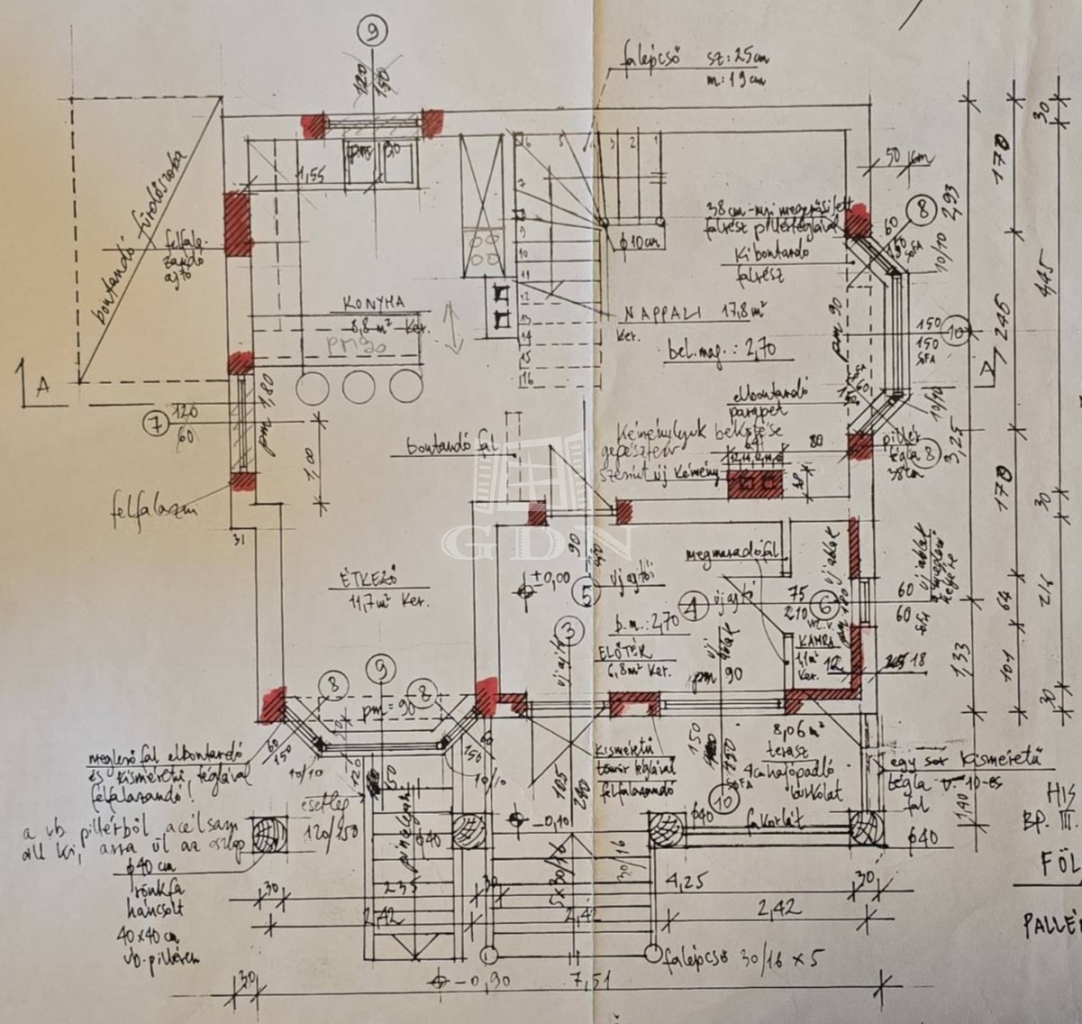 9
120
150
falépcső sz: 25cm
m: 19 cm
pm 30
1,55
bontandó fürdőszoba
felfala-
zandó
ajtó
1
2
3
4
5
6
7
8
9
10
11
12
13
14
15
16
ø10cm
38 cm-
falrész pillértéglával
kibontandó
falrész
50 cm
8
60
10/10
2,93
30
170
4,45
KONYHA
8,8 m² Ker.
pm 90
NAPPALI 17,8 m²
Ker.
bel.mag.: 2,70
pm 90
150
150
10
245
A
7
120
60
pm 1,80
1,00
elbontandó
parapet
Kéménylyuk bekötése
gépészterv
szerint új kémény
80
10/10
pillér
tégla
38 cm
8
3,25
170
30
bontandó fal
felfalazni
31
GDN
ÉTKEZŐ
11,7 m² Ker.
±0,00
90
új ajtó
5
megmaradó fal
új ajtó
4
75
210
6
új ablak
60
60
új ablak
64
216
b.m.: 2,70
ELŐTÉR
6,8 m² Ker.
3
új ajtó
új ablak
pm 90
KAMRA
1,1 m²
Ker.
12
18
1,33
101
30
9
8
8
pm=90
60
150
10/10
10/10
meglévő fal elbontandó
és kisméretű téglával
felfalazandó!
120
esetleg
120/250
pincelejáró
ø40
a vb pillérből acélsam
áll ki, arra ül az oszlop
ø40 cm
rönkfa
háncsolt
40x40 cm
vb-pilléren
kisméretű
tömör téglával
felfalazandó
105
240
-0,10
150
150
10
8,06 m²
terasz
4cm hajópadló
burkolat
fakorlát
egy sor kisméretű
tégla v. 10-es
fal
1,40
ø40
ø40
HIS
BP. III.
FÖL
PALLÉ
30
235
30
5x30/16
30/16
4,25
30
2,42
2,42
2,42
falépcső 30/16 x 5
30
-0,90
7,51